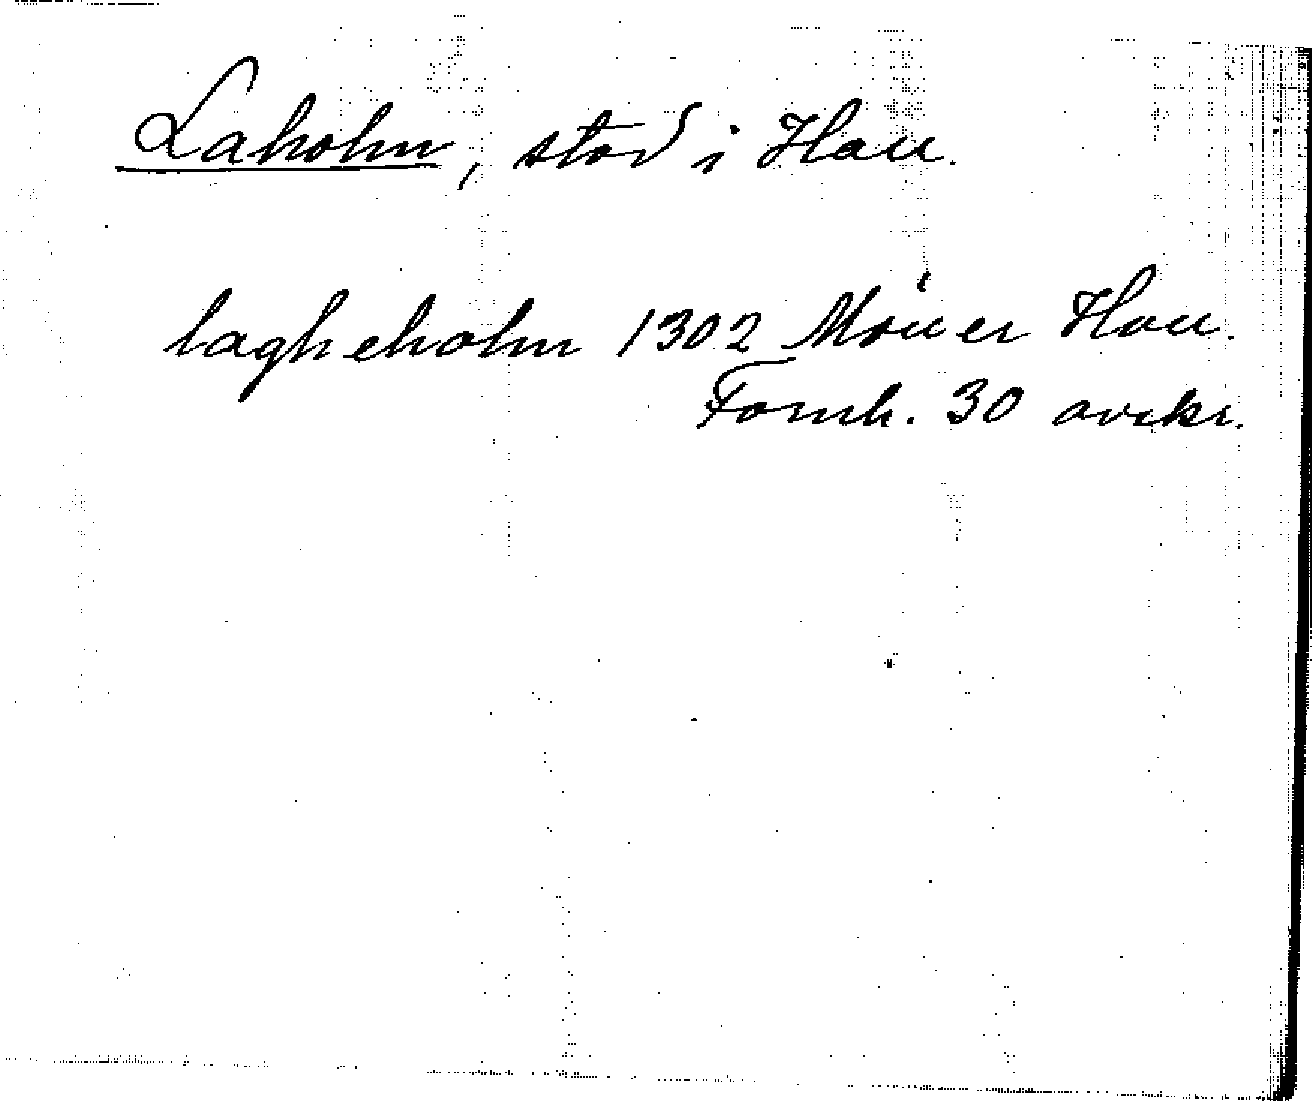 Laholm, stad i Hall.
lagheholm 1302 Möller Hall.
Fornh. 30 avskr.